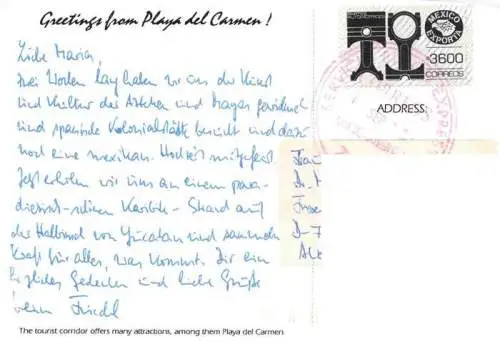 Greetings from Playa del Carmen !
Liebe Maria,
drei Wochen lang haben wir uns der Kunst
und Kultur der Azteken und Mayas gewidmet
und spanische Kolonialstädte besucht und dazu
noch eine mexikan. Hochzeit mitgefeiert.
Jetzt erholen wir uns an einem para-
diesisch-schönen Karibik-Strand auf
der Halbinsel von Yucatan und sammeln
Kraft für alles, was kommt. Dir ein
herzliches Gedenken und liebe Grüße
Friedl
MEXICO
EXPORTA
3600
CORREOS
ADDRESS:
D-7
The tourist corridor offers many attractions, among them Playa del Carmen